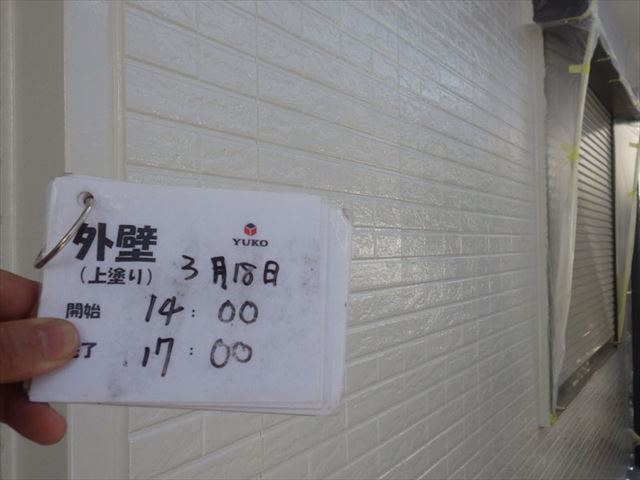 外壁
YUKO
(上塗り) 3月18日
開始 14:00
了 17:00